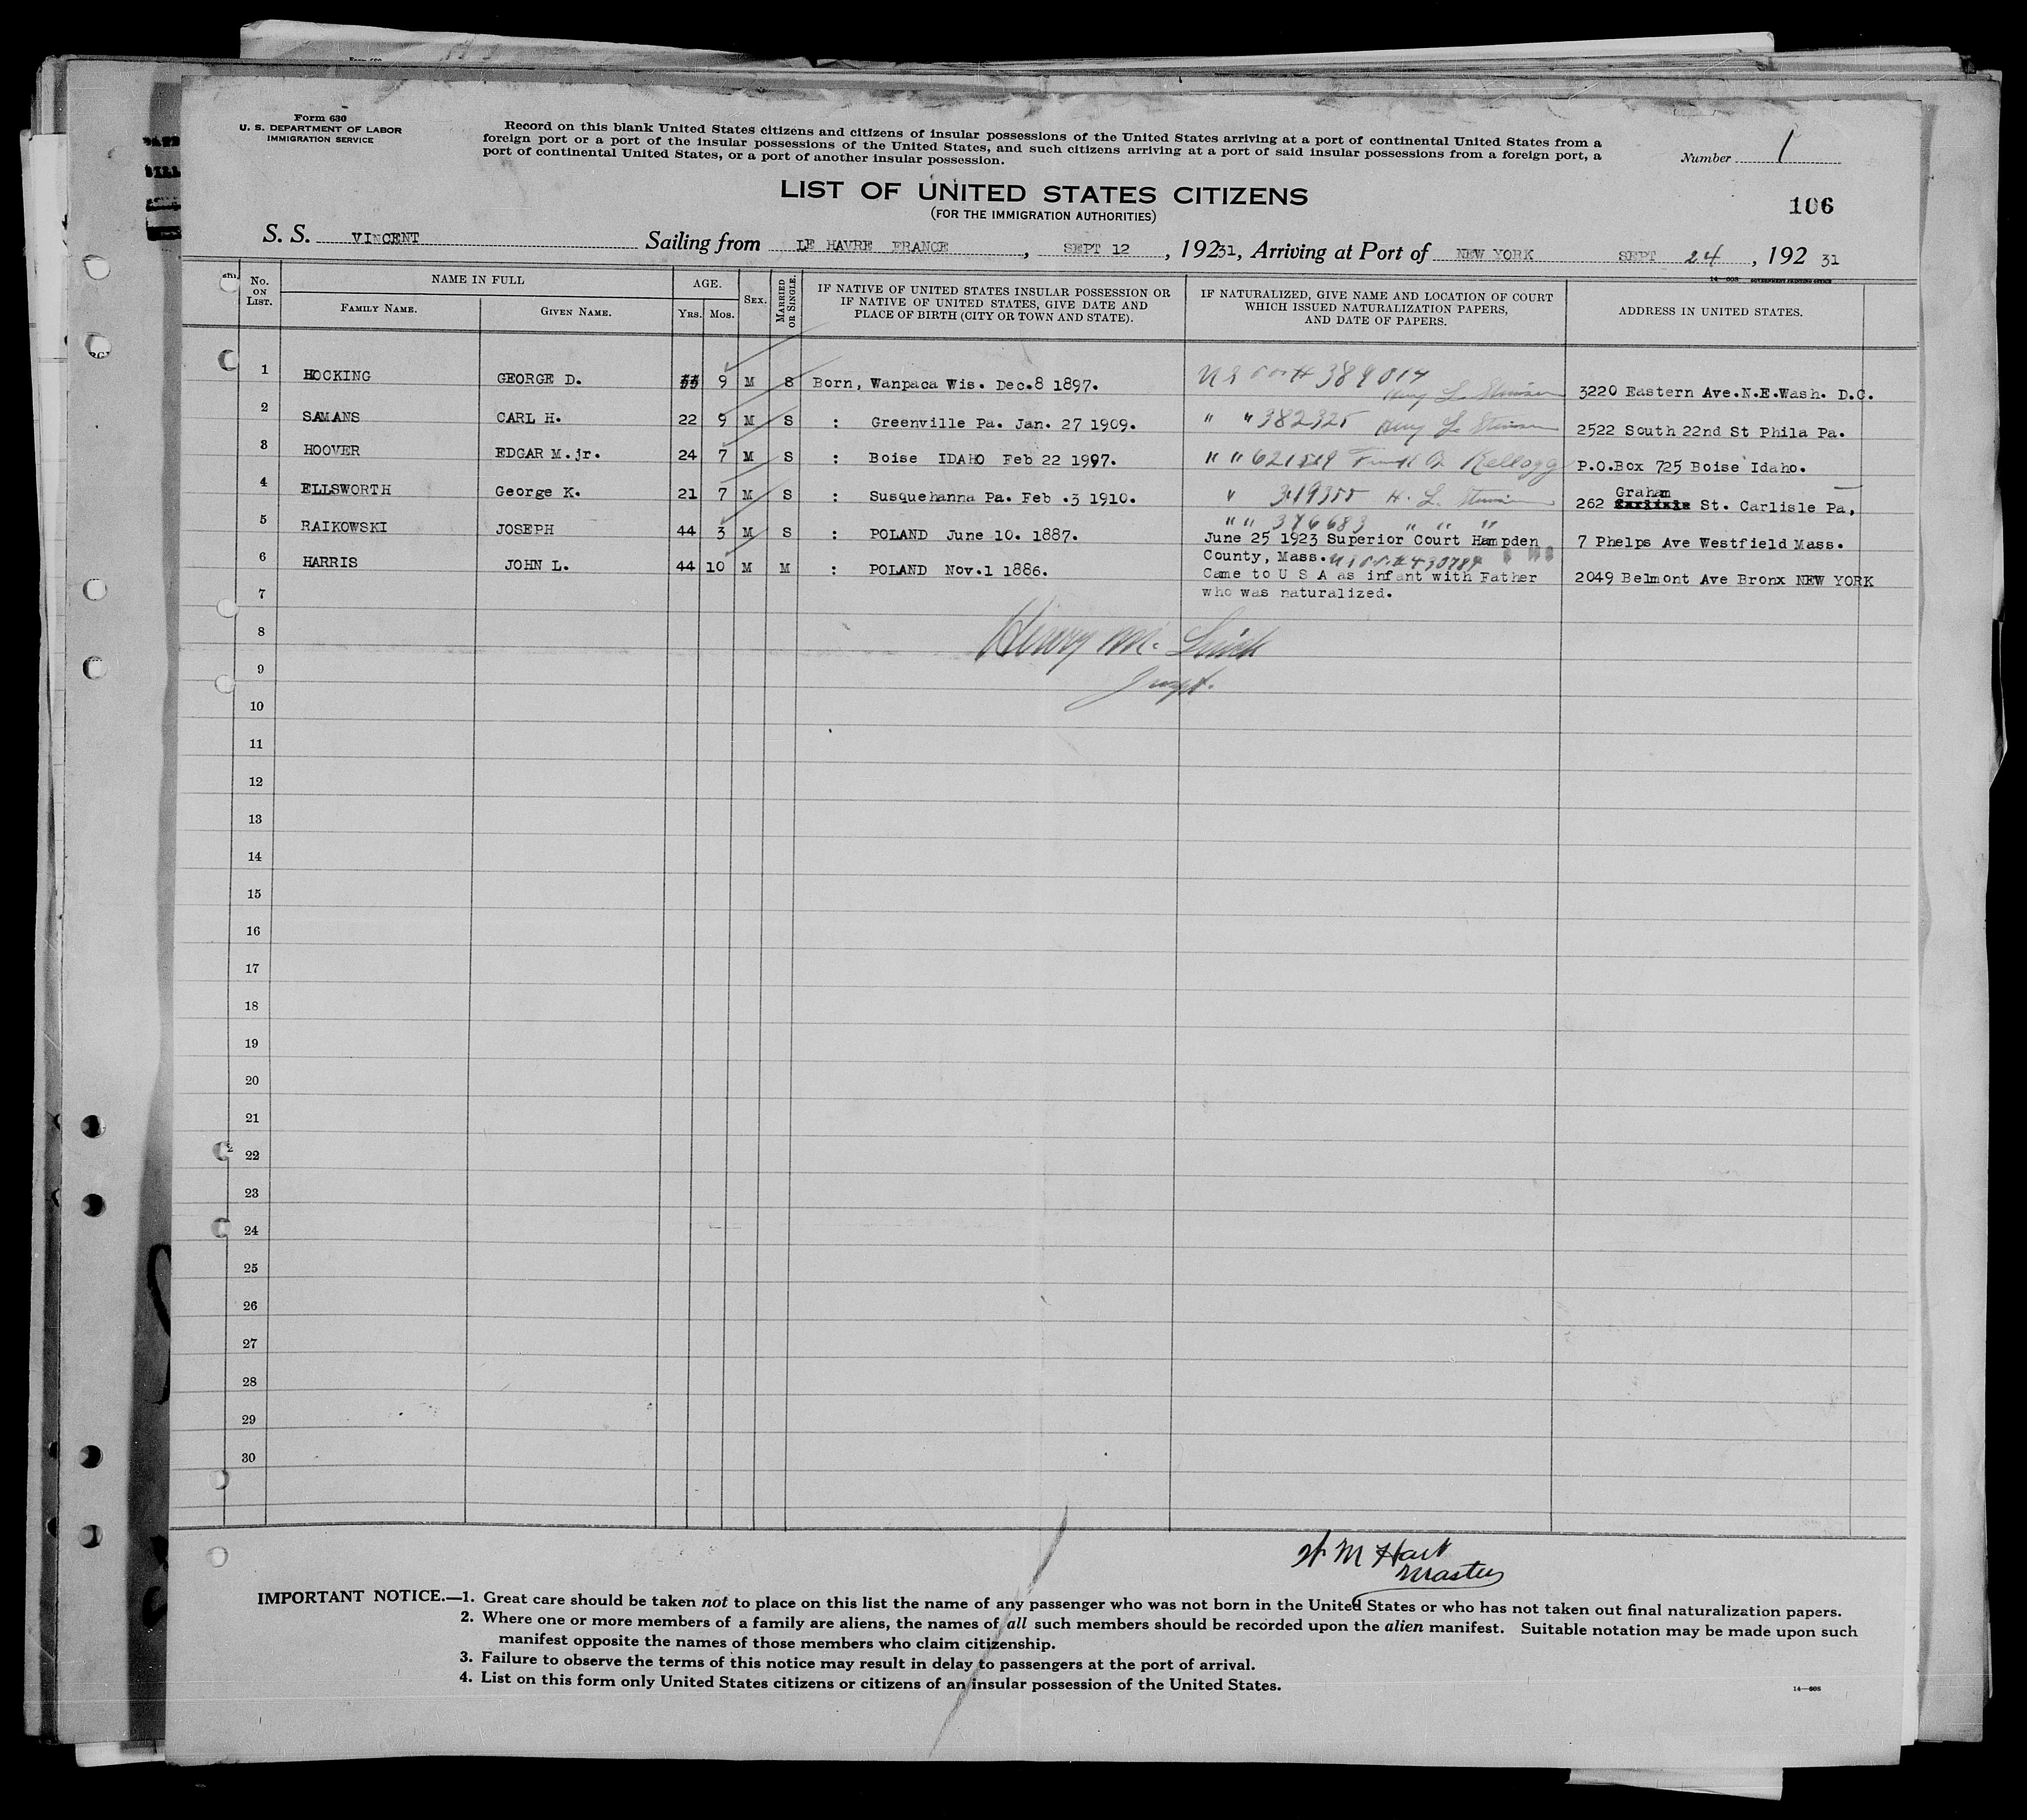 Form 630
U. S. DEPARTMENT OF LABOR
IMMIGRATION SERVICE
Record on this blank United States citizens and citizens of insular possessions of the United States arriving at a port of continental United States from a
foreign port or a port of the insular possessions of the United States, and such citizens arriving at a port of said insular possessions from a foreign port, a
port of continental United States, or a port of another insular possession.
Number 1
LIST OF UNITED STATES CITIZENS
(FOR THE IMMIGRATION AUTHORITIES)
106
S. S. VINCENT Sailing from LE HAVRE FRANCE, SEPT 12, 19231, Arriving at Port of NEW YORK SEPT 24, 192 31
14-608 GOVERNMENT PRINTING OFFICE
No. ON LIST. NAME IN FULL AGE. SEX. MARRIED OR SINGLE. IF NATIVE OF UNITED STATES INSULAR POSSESSION OR IF NATIVE OF UNITED STATES, GIVE DATE AND PLACE OF BIRTH (CITY OR TOWN AND STATE). IF NATURALIZED, GIVE NAME AND LOCATION OF COURT WHICH ISSUED NATURALIZATION PAPERS, AND DATE OF PAPERS. ADDRESS IN UNITED STATES.
FAMILY NAME. GIVEN NAME. YRS. MOS.
1 HOCKING GEORGE D. 9 M S Born, Wanpaca Wis. Dec.8 1897. 3220 Eastern Ave.N.E.Wash. D.C.
2 SAMANS CARL H. 22 9 M S : Greenville Pa. Jan. 27 1909. " " 382325 2522 South 22nd St Phila Pa.
3 HOOVER EDGAR M.jr. 24 7 M S : Boise IDAHO Feb 22 1997. " " Kellogg P.O.Box 725 Boise Idaho.
4 ELLSWORTH George K. 21 7 M S : Susquehanna Pa. Feb .3 1910. " 319355 H. L. 262 Graham St. Carlisle Pa,
" " 376683 " " "
5 RAIKOWSKI JOSEPH 44 3 M S : POLAND June 10. 1887. June 25 1923 Superior Court Hampden 7 Phelps Ave Westfield Mass.
County, Mass.
6 HARRIS JOHN L. 44 10 M M : POLAND Nov.1 1886. Came to U S A as infant with Father 2049 Belmont Ave Bronx NEW YORK
7 who was naturalized.
8 Henry M.
9
10
11
12
13
14
15
16
17
18
19
20
21
22
23
24
25
26
27
28
29
30
W M Hart
Master
IMPORTANT NOTICE.—1. Great care should be taken not to place on this list the name of any passenger who was not born in the United States or who has not taken out final naturalization papers.
2. Where one or more members of a family are aliens, the names of all such members should be recorded upon the alien manifest. Suitable notation may be made upon such
manifest opposite the names of those members who claim citizenship.
3. Failure to observe the terms of this notice may result in delay to passengers at the port of arrival.
4. List on this form only United States citizens or citizens of an insular possession of the United States.
14—608